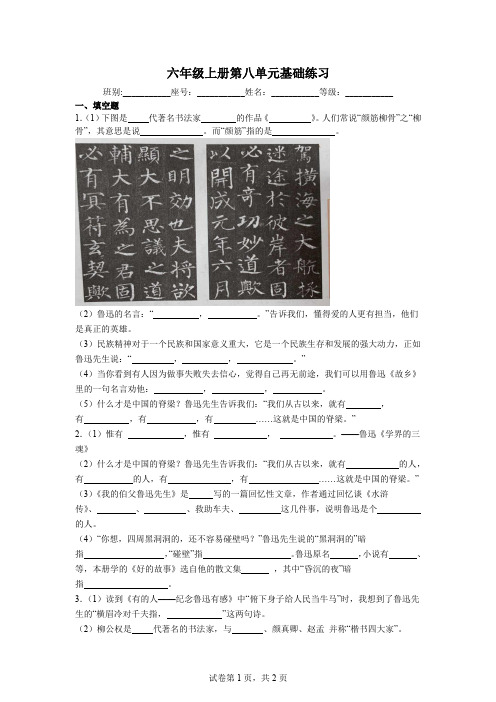 六年级上册第八单元基础练习
班别:___________座号：___________姓名：___________等级：___________
一、填空题
1．（1）下图是_____代著名书法家________的作品《__________》。人们常说“颜筋柳骨”之“柳
骨”，其意思是说______________。而“颜筋”指的是______________。
駕橫海之大航拯
迷途於彼岸者固
必有奇功妙道歟
以開成元年六月
之明効也夫將欲
顯大不思議之道
輔大有為之君固
必有冥符玄契歟
（2）鲁迅的名言：“__________，___________。”告诉我们，懂得爱的人更有担当，他们
是真正的英雄。
（3）民族精神对于一个民族和国家意义重大，它是一个民族生存和发展的强大动力，正如
鲁迅先生说：“_________，__________，____________。”
（4）当你看到有人因为做事失败失去信心，觉得自己再无前途，我们可以用鲁迅《故乡》
里的一句名言劝他：___________，____________，___________。
（5）什么才是中国的脊梁？鲁迅先生告诉我们：“我们从古以来，就有________，
有__________，有___________，有_________……这就是中国的脊梁。”
2．（1）惟有 ____________，惟有 ____________ ， ____________ 。——鲁迅《学界的三
魂》
（2）什么才是中国的脊梁？鲁迅先生告诉我们：“我们从古以来，就有____________的人，
有___________的人，有______________，有_______________……这就是中国的脊梁。”
（3）《我的伯父鲁迅先生》是______写的一篇回忆性文章，作者通过回忆谈《水浒
传》、_________、_________、救助车夫、_________这几件事，说明鲁迅是个__________
的人。
（4）“你想，四周黑洞洞的，还不容易碰壁吗？”鲁迅先生说的“黑洞洞的”暗
指__________________，“碰壁”指____________________。鲁迅原名______，小说有______、
等，本册学的《好的故事》选自他的散文集______ ，其中“昏沉的夜”暗
指___________________。
3．（1）读到《有的人——纪念鲁迅有感》中“俯下身子给人民当牛马”时，我想到了鲁迅先
生的“横眉冷对千夫指，____________”这两句诗。
（2）柳公权是_____代著名的书法家，与_______、颜真卿、赵孟 并称“楷书四大家”。
试卷第1页，共2页